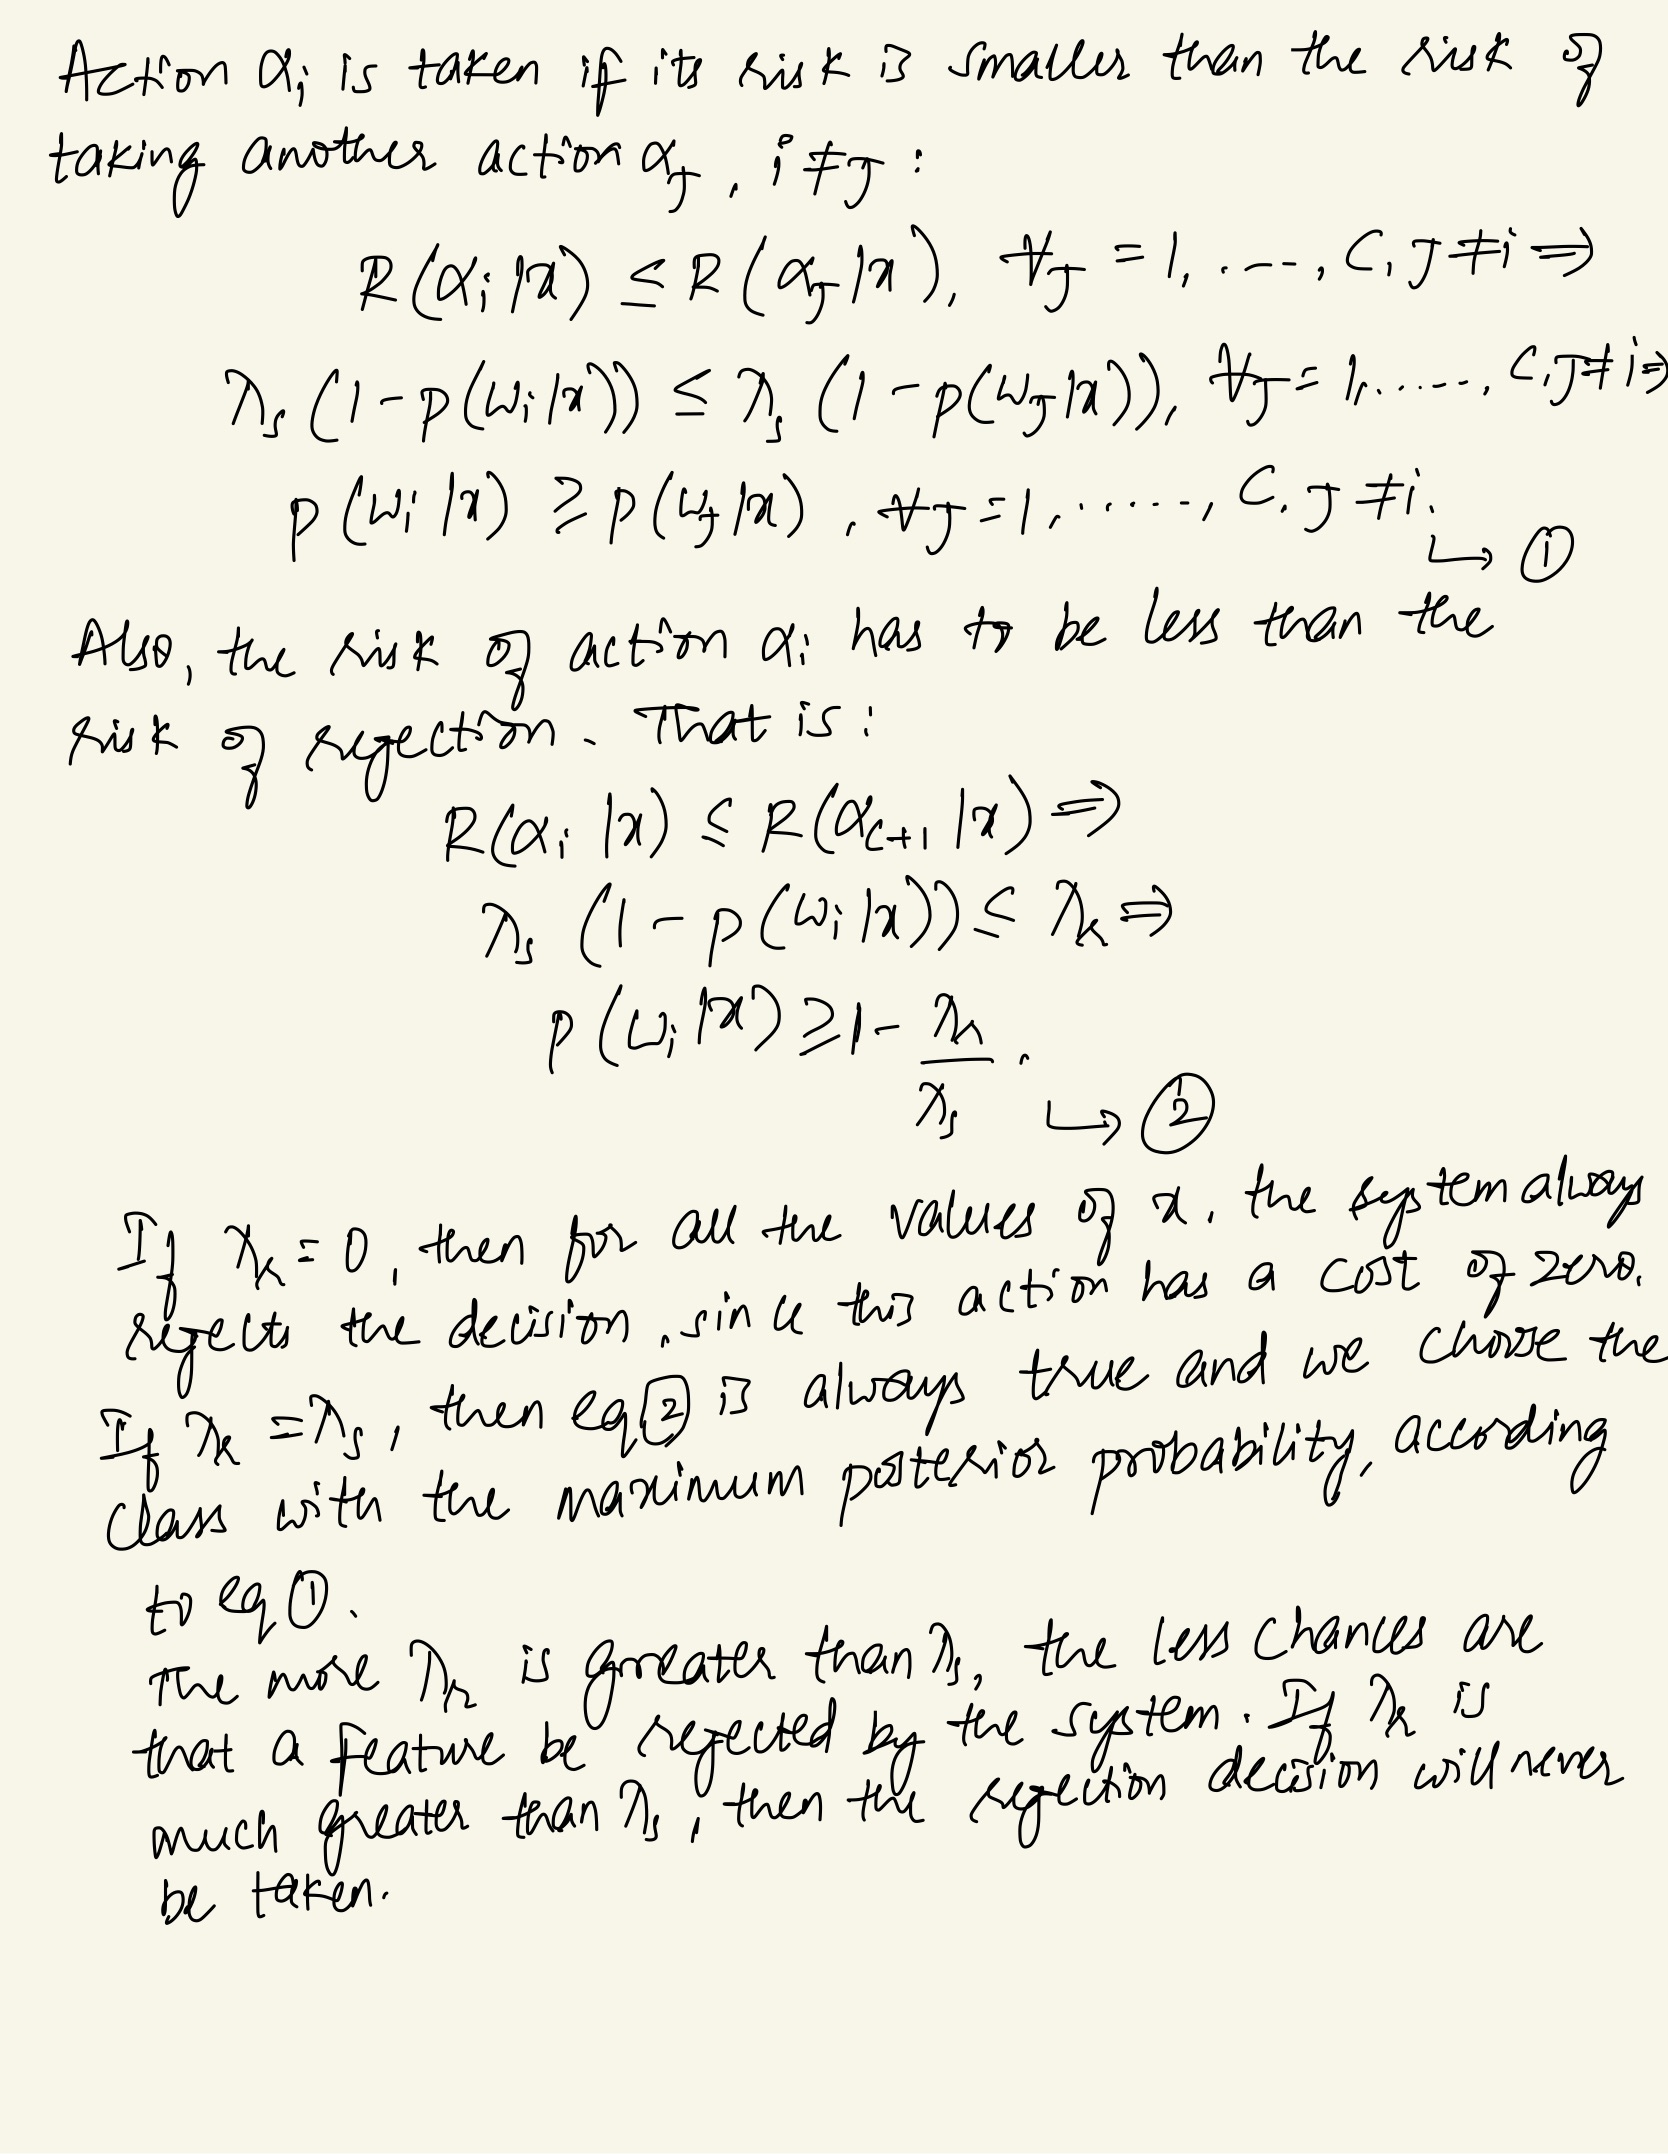 Action αi is taken if its risk is smaller than the risk of
taking another action αJ, i≠J:
R(αi|x) ≤ R(αJ|x), ∀J = 1, ...., C, J≠i ⇒
λs (1-p(ωi|x)) ≤ λs (1-p(ωJ|x)), ∀J = 1, ......, C, J≠i ⇒
p(ωi|x) ≥ p(ωJ|x), ∀J = 1, ......, C, J≠i.
↳ ①
Also, the risk of action αi has to be less than the
risk of rejection. That is:
R(αi|x) ≤ R(αc+1|x) ⇒
λs (1-p(ωi|x)) ≤ λk ⇒
p(ωi|x) ≥ 1 - λk/λs.
↳ ②
If λk = 0, then for all the values of x, the system always
rejects the decision, since this action has a cost of zero.
If λk = λs, then eq② is always true and we choose the
class with the maximum posterior probability, acording
to eq①.
The more λk is greater than λs, the less chances are
that a feature be rejected by the system. If λk is
much greater than λs, then the rejection decision will never
be taken.